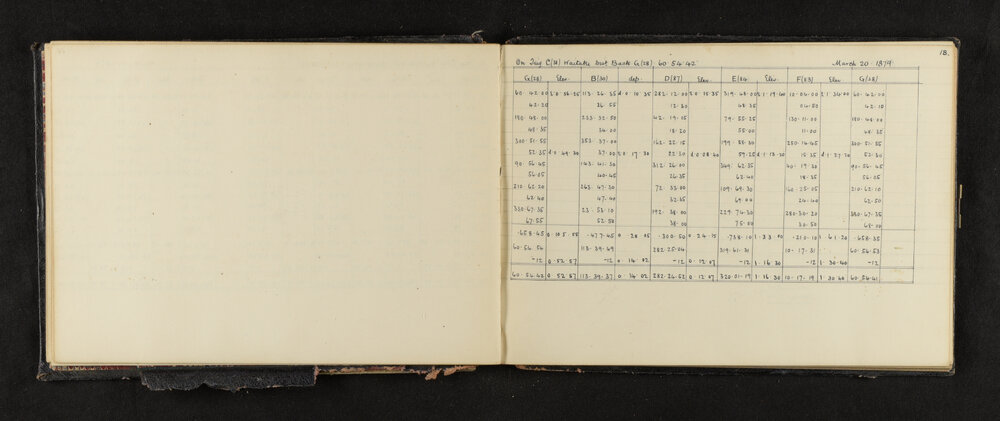 18.
On Trig C(31) Waitaki but Back G(28) 60·54·42 March 20·1879
G(28) Elev. B(30) dep. D(27) Elev. E(04 Elev. F(53) Elev. G(28)
60·42·00 113·26·35 d·0·10·35 282·12·00 2·0·15·35 319·48·00 2·1·19·40 10·04·00 2·1·34·00 60·42·00
42·20 26·55 12·20 48·35 04·50 42·10
180·48·00 233·32·50 42·19·05 79·55·25 130·11·00 180·48·00
48·35 34·00 18·20 55·00 11·00 48·35
300·51·55 353·37·00 162·25·15 199·58·30 250·14·45 300·51·55
52·35 d·0·49·30 37·00 2·0·17·30 25·20 d·0·08·40 59·25 d·1·13·20 15·35 d·1·27·20 52·30
90·56·45 143·41·30 312·26·00 349·62·35 40·19·20 90·56·45
56·05 40·45 26·35 62·40 18·25 56·05
210·62·20 263·47·30 72·32·00 109·69·30 160·25·05 210·62·10
62·40 47·40 32·35 69·00 24·40 62·50
330·67·35 23·53·10 192·38·00 229·74·30 280·30·20 330·67·35
67·55 52·50 38·00 75·00 30·50 68·00
·658·45 0·105·55 ·477·45 0·28·05 ·300·50 0·24·15 ·738·10 ·210·10 ·658·35
60·54·54 113·39·49 282·25·04 319·61·31 10·17·31 60·54·53
-12 0·52·57 -12 0·14·02 -12 0·12·07 -12 1·16·30 -12 1·30·40 -12
60·54·42 0 52 57 113·39·37 0 14 02 282·24·52 0 12·07 320·01·19 1·16·30 10·17·19 1·30·40 60·54·41